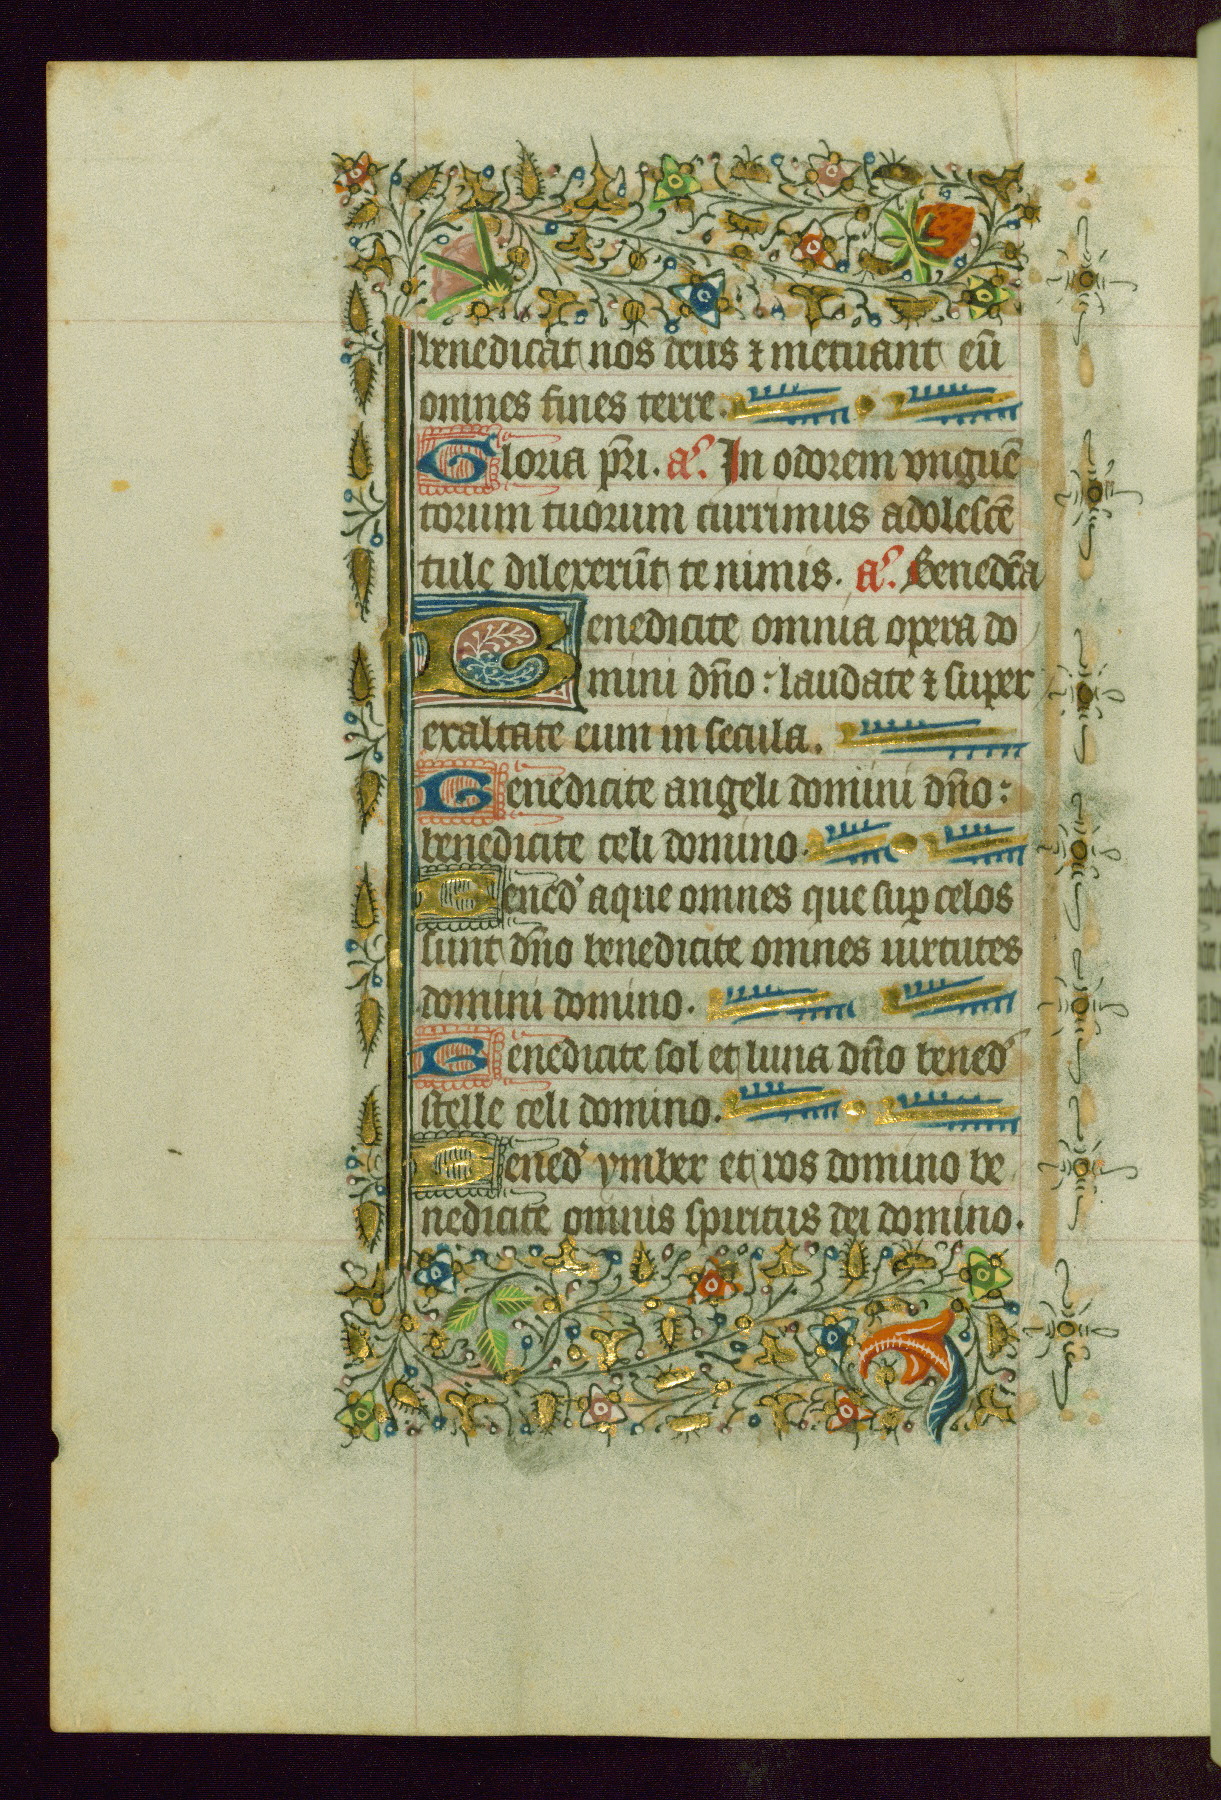 benedicat nos deus ⁊ metuant eu̅
omnes fines terre.
Gloria p̅ri. a̾. In odorem vngue̅
torum tuorum currimus adolesce̅
tule dilexeru̅t te nimis. a̾. Bened̅ca
Benedicite omnia opera do
mini dn̅o: laudate ⁊ super
exaltate eum in secula.
Benedicite angeli domini dn̅o:
benedicite celi domino.
Bened̾ aque omnes que sup̲ celos
sunt dn̅o benedicite omnes uirtutes
domini domino.
Benedicite sol et luna dn̅o bened̾
stelle celi domino.
Bened̾ ymber et ros domino be
nedicite omnis spiritus dei domino.